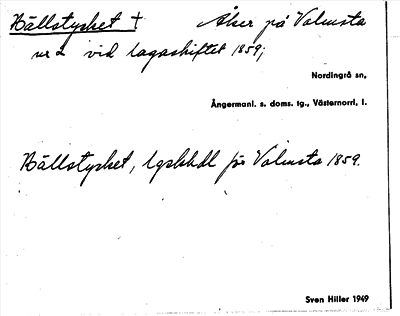 Bällstycket † Åker på Valmsta
nr 2 vid lagaskiftet 1859;
Nordingrå sn,
Ångermanl. s. doms. tg., Västernorrl, l.
Bällstycket, lgskhdl för Valmsta 1859.
Sven Hiller 1949